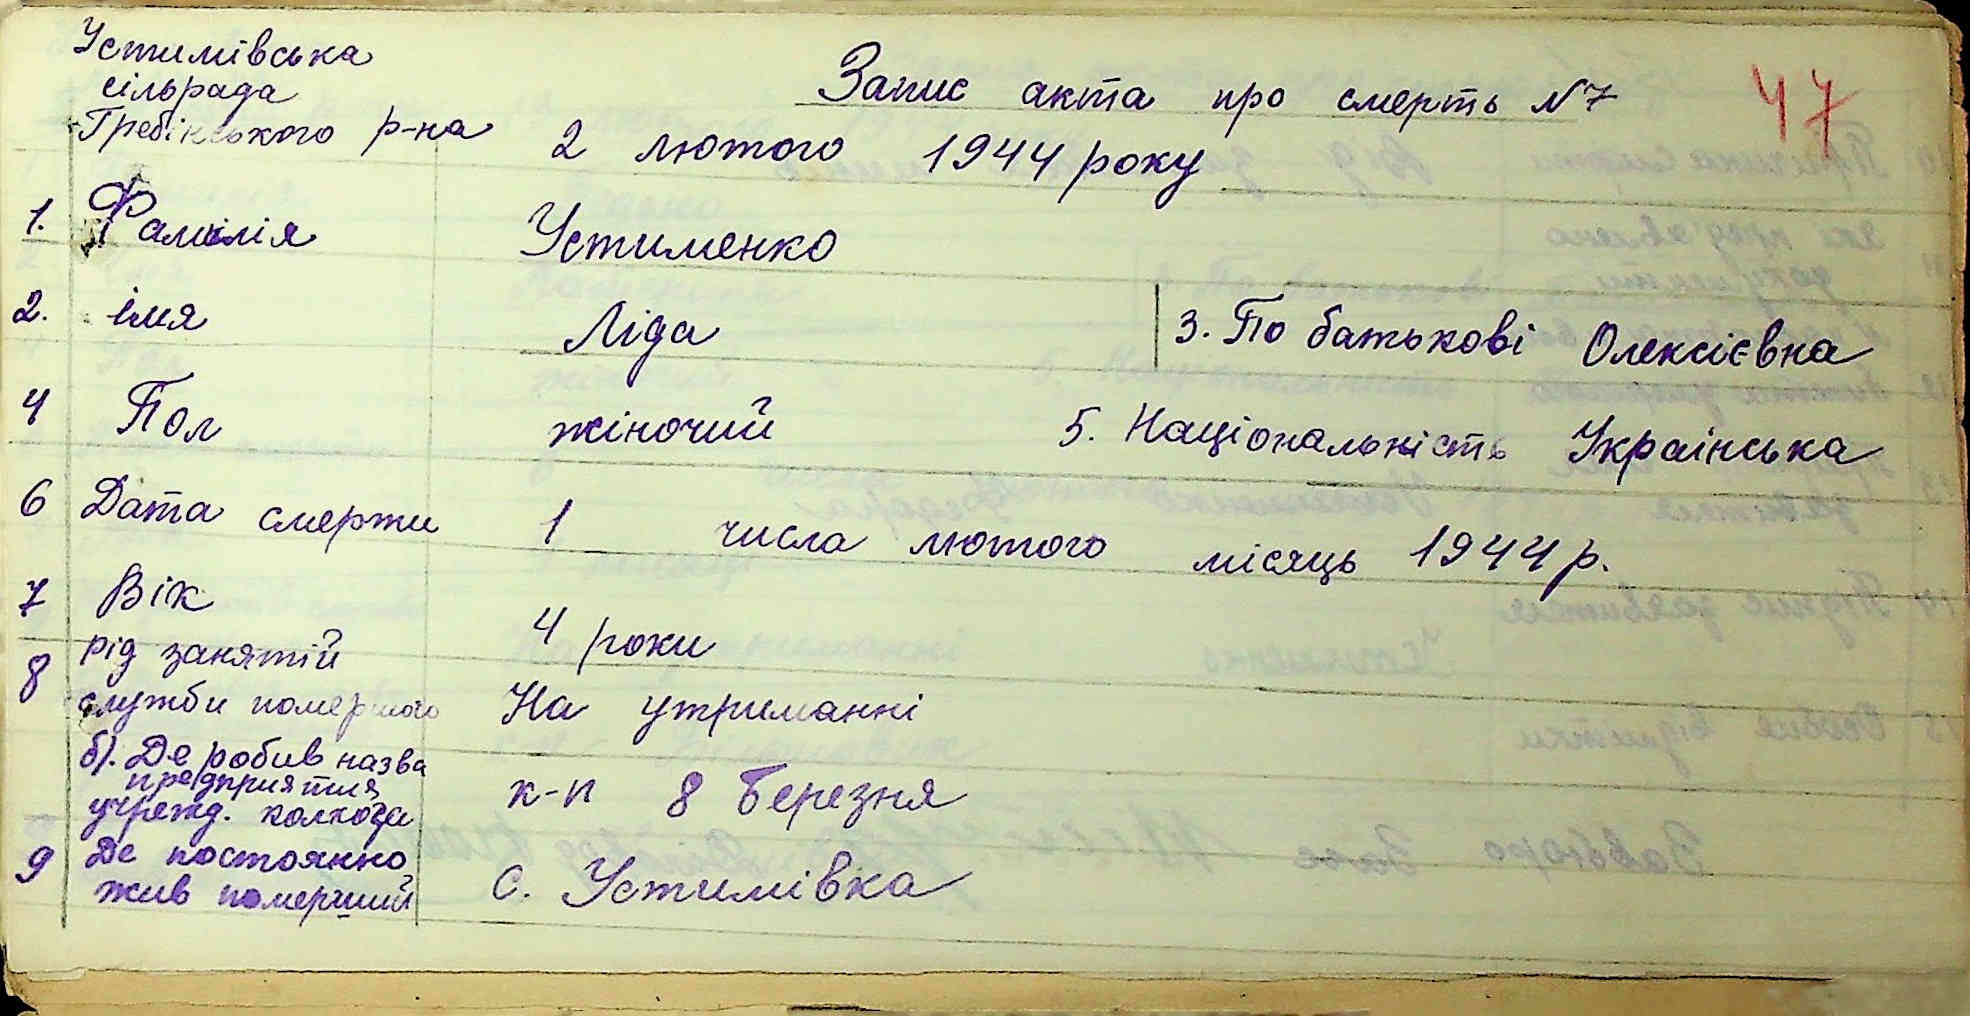 Устимівська
сільрада
Гребінківського р-на
Запис акта про смерть №7
47
2 лютого 1944 року
1. Фамілія Устименко
2. імя Ліда 3. По батькові Олексієвна
4 Пол жіночий 5. Національність Українська
6 Дата смерти 1 числа лютого місяць 1944 р.
7 Вік 4 роки
8 рід занятій
служби помершого На утриманні
б). Де робив назва
предприятия
учрежд. колхоза к-п 8 Березня
9 Де постоянно
жив померший с. Устимівка